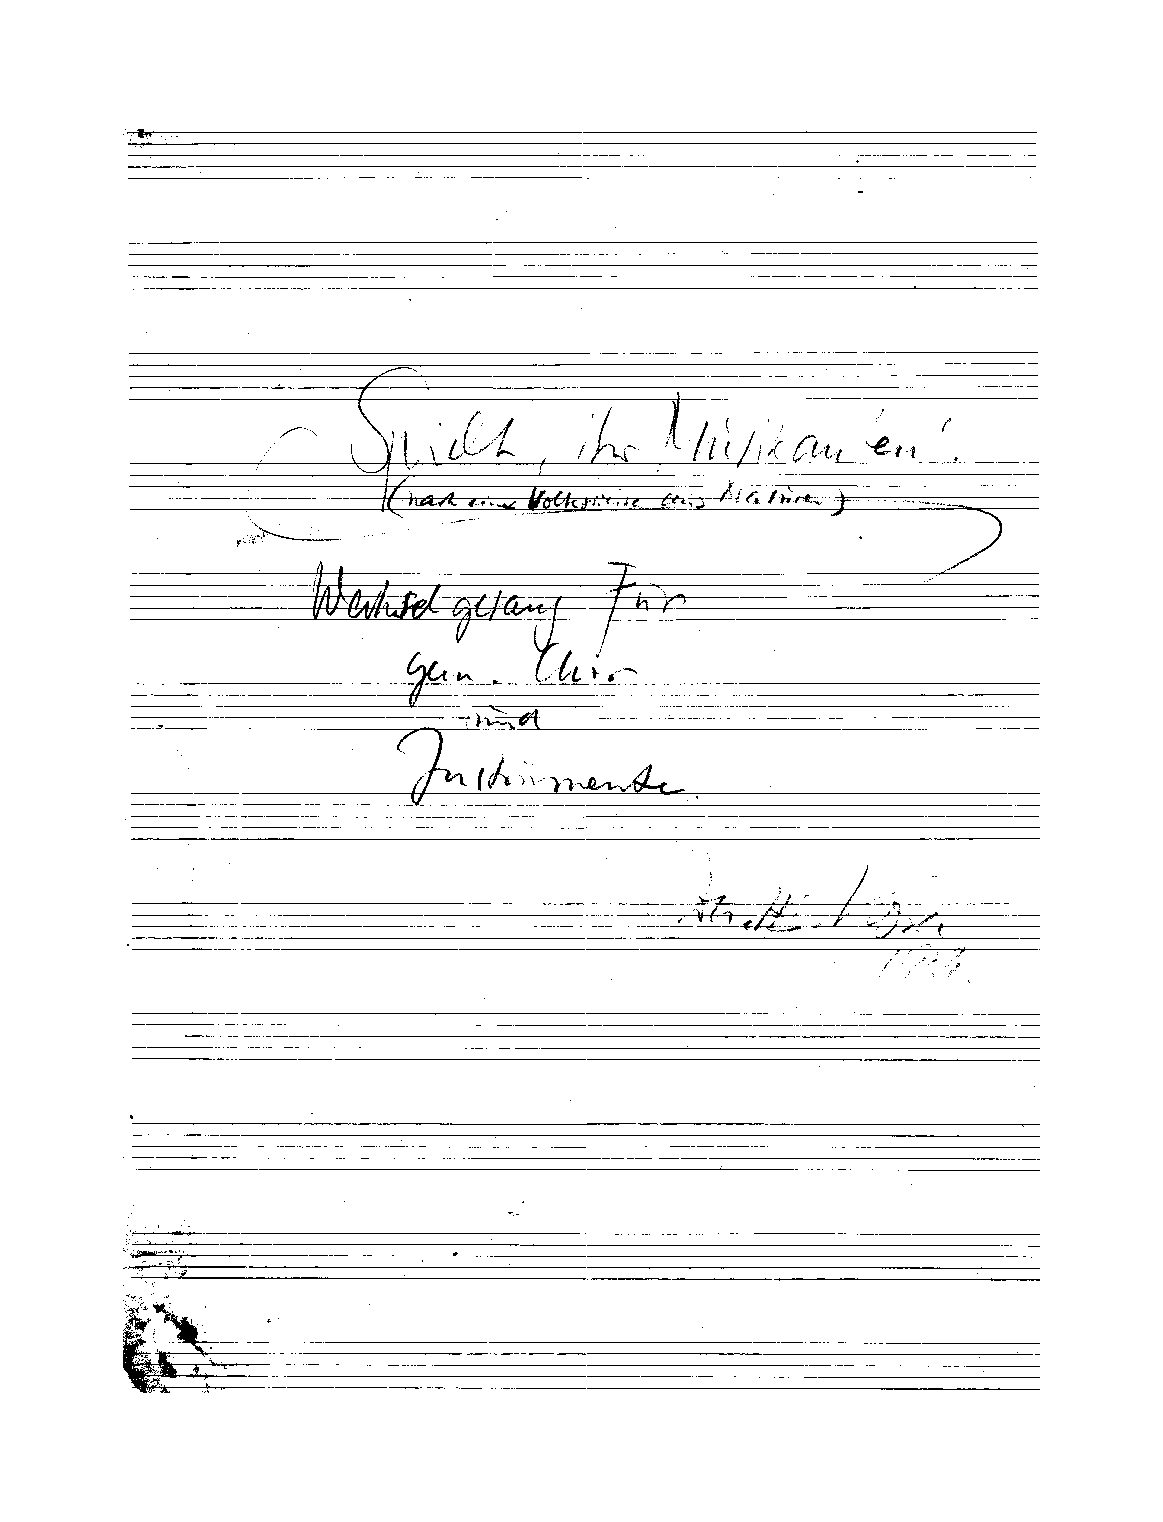 Spielt, ihr Musikanten!
(nach einer Volksweise aus Mähren)
Wechselgesang für
gem. Chor
und
Instrumente.